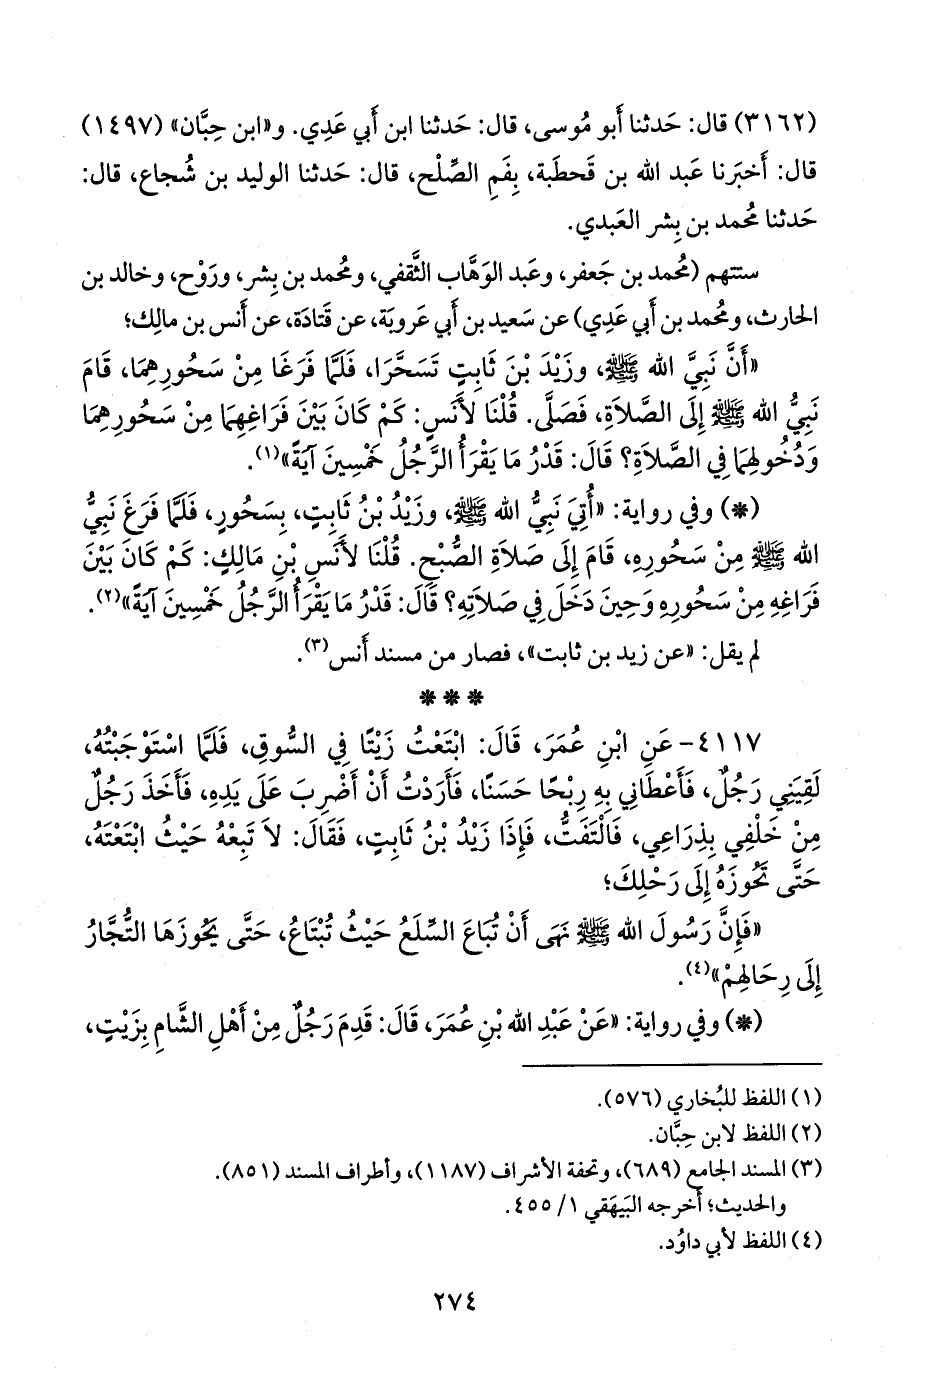 (٣١٦٢) قال: حَدثنا أَبو مُوسى، قال: حَدثنا ابن أَبي عَدِي. و«ابن حِبَّان» (١٤٩٧)
قال: أَخبَرنا عَبد الله بن قَحطبَة، بِفَمِ الصِّلْح، قال: حَدثنا الوليد بن شُجاع، قال:
حَدثنا مُحمد بن بِشر العَبدي.
ستتهم (مُحمد بن جَعفر، وعَبد الوَهَّاب الثَّقفي، ومُحمد بن بِشر، ورَوْح، وخالد بن
الحارث، ومُحمد بن أَبي عَدِي) عن سَعيد بن أَبي عَروبَة، عن قَتادَة، عن أَنس بن مالِك؛
«أَنَّ نَبِيَّ الله ﷺ، وزَيْدَ بْنَ ثَابِتٍ تَسَحَّرَا، فَلَمَّا فَرَغَا مِنْ سَحُورِهِمَا، قَامَ
نَبِيُّ الله ﷺ إِلَى الصَّلاَةِ، فَصَلَّى. قُلْنَا لأَنَسٍ: كَمْ كَانَ بَيْنَ فَرَاغِهِمَا مِنْ سَحُورِهِمَا
وَدُخُولِهِمَا فِي الصَّلاَةِ؟ قَالَ: قَدْرُ مَا يَقْرَأُ الرَّجُلُ خَمْسِينَ آيَةً»(١).
(*) وفي رواية: «أُتِيَ نَبِيُّ الله ﷺ، وزَيْدُ بْنُ ثَابِتٍ، بِسَحُورٍ، فَلَمَّا فَرَغَ نَبِيُّ
الله ﷺ مِنْ سَحُورِهِ، قَامَ إِلَى صَلاَةِ الصُّبْحِ. قُلْنَا لأَنَسِ بْنِ مَالِكٍ: كَمْ كَانَ بَيْنَ
فَرَاغِهِ مِنْ سَحُورِهِ وَحِينَ دَخَلَ فِي صَلاَتِهِ؟ قَالَ: قَدْرُ مَا يَقْرَأُ الرَّجُلُ خَمْسِينَ آيَةً»(٢).
لم يقل: «عن زيد بن ثابت»، فصار من مسند أَنس(٣).
* * *
٤١١٧- عَنِ ابْنِ عُمَرَ، قَالَ: ابْتَعْتُ زَيْتًا فِي السُّوقِ، فَلَمَّا اسْتَوْجَبْتُهُ،
لَقِيَنِي رَجُلٌ، فَأَعْطَانِي بِهِ رِبْحًا حَسَنًا، فَأَرَدْتُ أَنْ أَضْرِبَ عَلَى يَدِهِ، فَأَخَذَ رَجُلٌ
مِنْ خَلْفِي بِذِرَاعِي، فَالْتَفَتُّ، فَإِذَا زَيْدُ بْنُ ثَابِتٍ، فَقَالَ: لاَ تَبِعْهُ حَيْثُ ابْتَعْتَهُ،
حَتَّى تَحُوزَهُ إِلَى رَحْلِكَ؛
«فَإِنَّ رَسُولَ الله ﷺ نَهَى أَنْ تُبَاعَ السِّلَعُ حَيْثُ تُبْتَاعُ، حَتَّى يَحُوزَهَا التُّجَّارُ
إِلَى رِحَالِهِمْ»(٤).
(*) وفي رواية: «عَنْ عَبْدِ الله بْنِ عُمَرَ، قَالَ: قَدِمَ رَجُلٌ مِنْ أَهْلِ الشَّامِ بِزَيْتٍ،
(١) اللفظ للبُخاري (٥٧٦).
(٢) اللفظ لابن حِبَّان.
(٣) المسند الجامع (٦٨٩)، وتحفة الأشراف (١١٨٧)، وأطراف المسند (٨٥١).
والحديث؛ أخرجه البَيهَقي ١/ ٤٥٥.
(٤) اللفظ لأبي داوُد.
٢٧٤